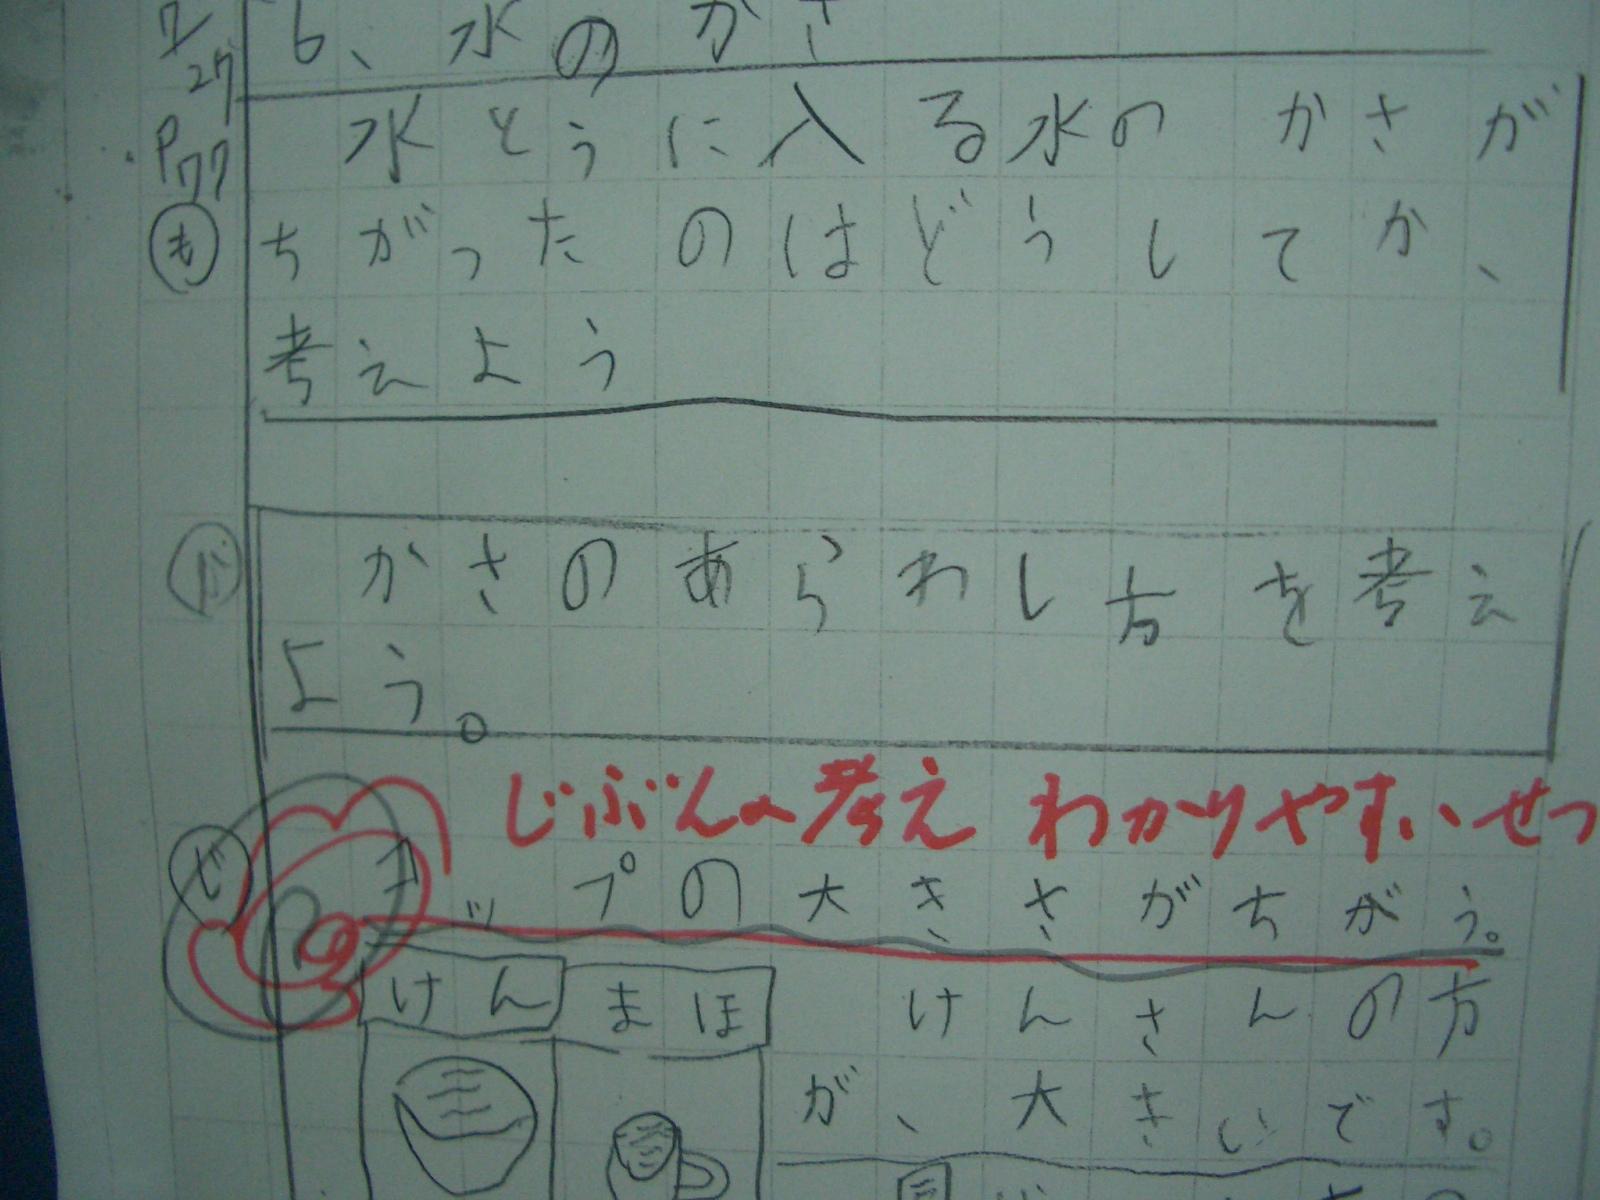 6、水のかさ
27
P77
水とうに入る水のかさが
も ちがったのはどうしてか、
考えよう
かさのあらわし方を考え
よう。
じぶんの考え わかりやすいせつ
コップの大きさがちがう。
けん まほ けんさんの方
が、大きいです。